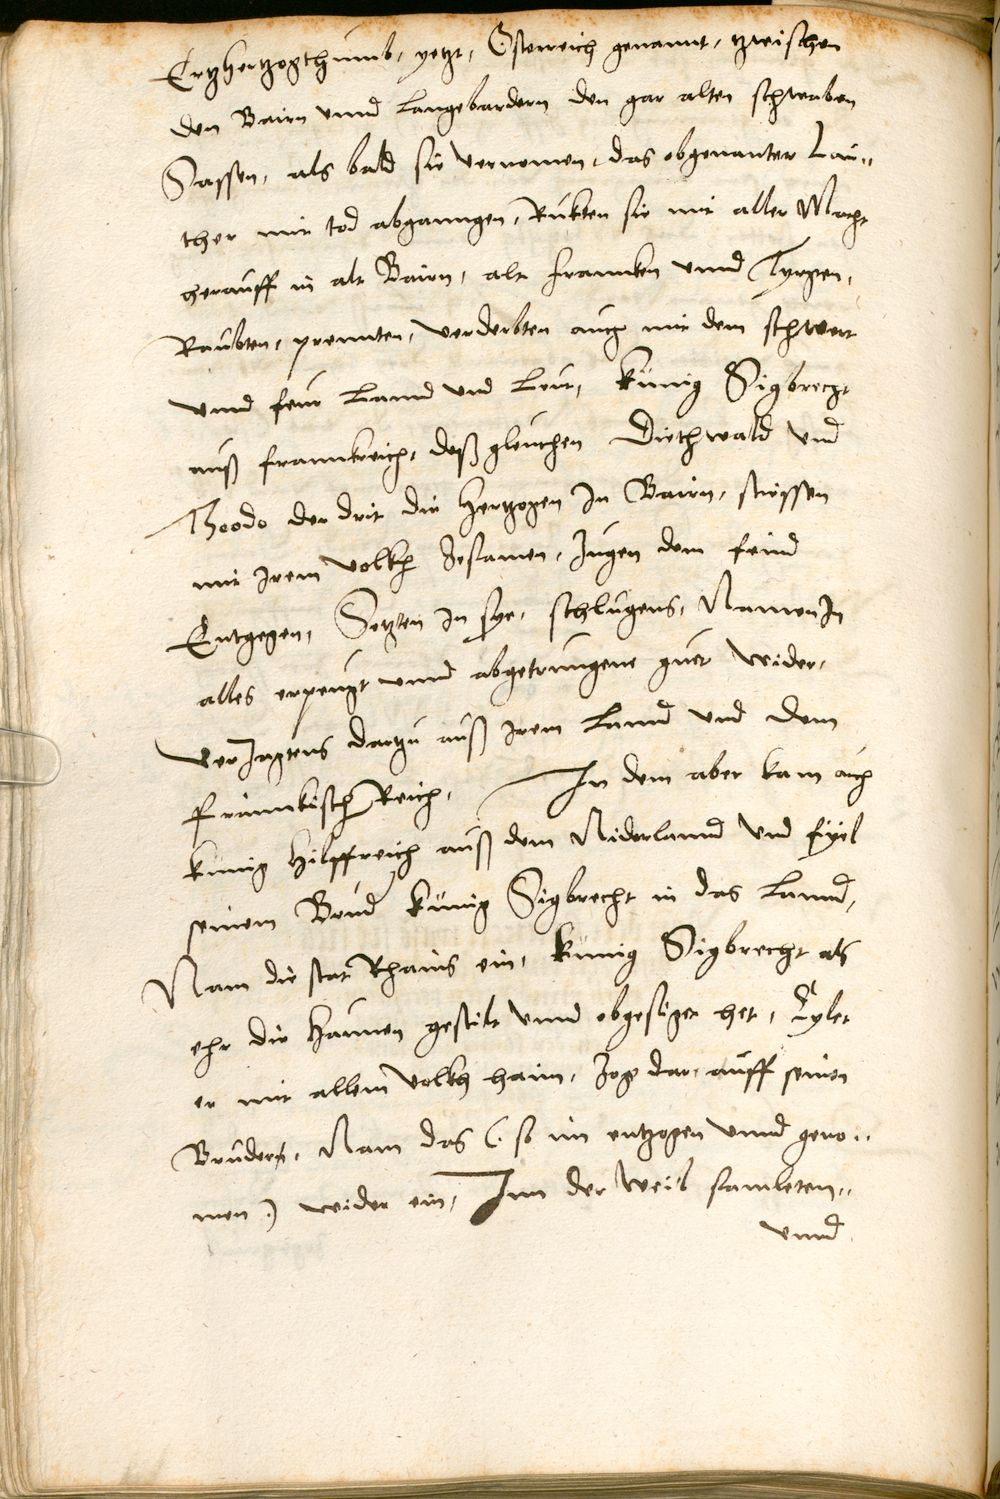 Ertzhertzogthumb, yetzt, Österreich genannt, tzwischen
den Bairn unnd Langebardern den gar alten schwaben
Sassen, als bald sie vernomen, das obgenanter Lau„
ther mit tod abganngen, Rukten sie mit aller Macht
herauff in alt Bairn, alt francken unnd Tyrgen,
Raubten, prennten, verderbten auch mit dem schwert
unnd feur Lannd und Leut, künig Sigbrecht
auß frannkreich, deßgleichen Diethwald und
Theodo der drit die Hertzogen In Bairn, stiessen
mit Irem volkh zesamen, Zugen dem feind
Entgegen, Setzten In sye, schlugens, Namen In
alles erpeugt unnd abgetrungene guet wider,
verJagtens dartzu auß Irem Lannd und dem
frännkisch Reich, In dem aber kam auch
künig Hilffreich auß dem Niderlannd und fyel
seinem Brud künig Sigbrecht in das Lannd,
Nam die stat Rhains ein, künig Sigbrecht als
ehr die Haunen gestilt unnd obgesiget het, Eylet
er mit allem volkh haim, Zog dar, auff seinen
Brudern, Nam das (: so im entzogen unnd geno„
men :) wider ein, Inn der weil samleten„
unnd